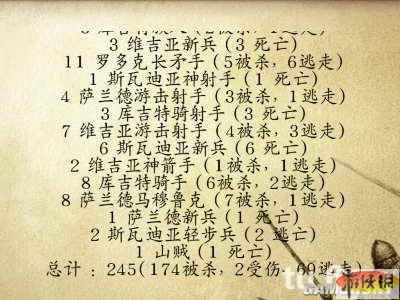 3 维吉亚新兵（3 死亡）
11 罗多克长矛手（5被杀，6逃走）
1 斯瓦迪亚神射手（1 死亡）
4 萨兰德游击射手（3被杀，1逃走）
3 库吉特骑射手（3 死亡）
7 维吉亚游击射手（4被杀，3逃走）
6 斯瓦迪亚新兵（6 死亡）
2 维吉亚神箭手（1被杀，1逃走）
8 库吉特骑手（6被杀，2逃走）
8 萨兰德马穆鲁克（7被杀，1逃走）
1 萨兰德新兵（1 死亡）
2 斯瓦迪亚轻步兵（2 逃亡）
1 山贼（1 死亡）
总计：245（174被杀，2受伤，69逃走）
游侠网